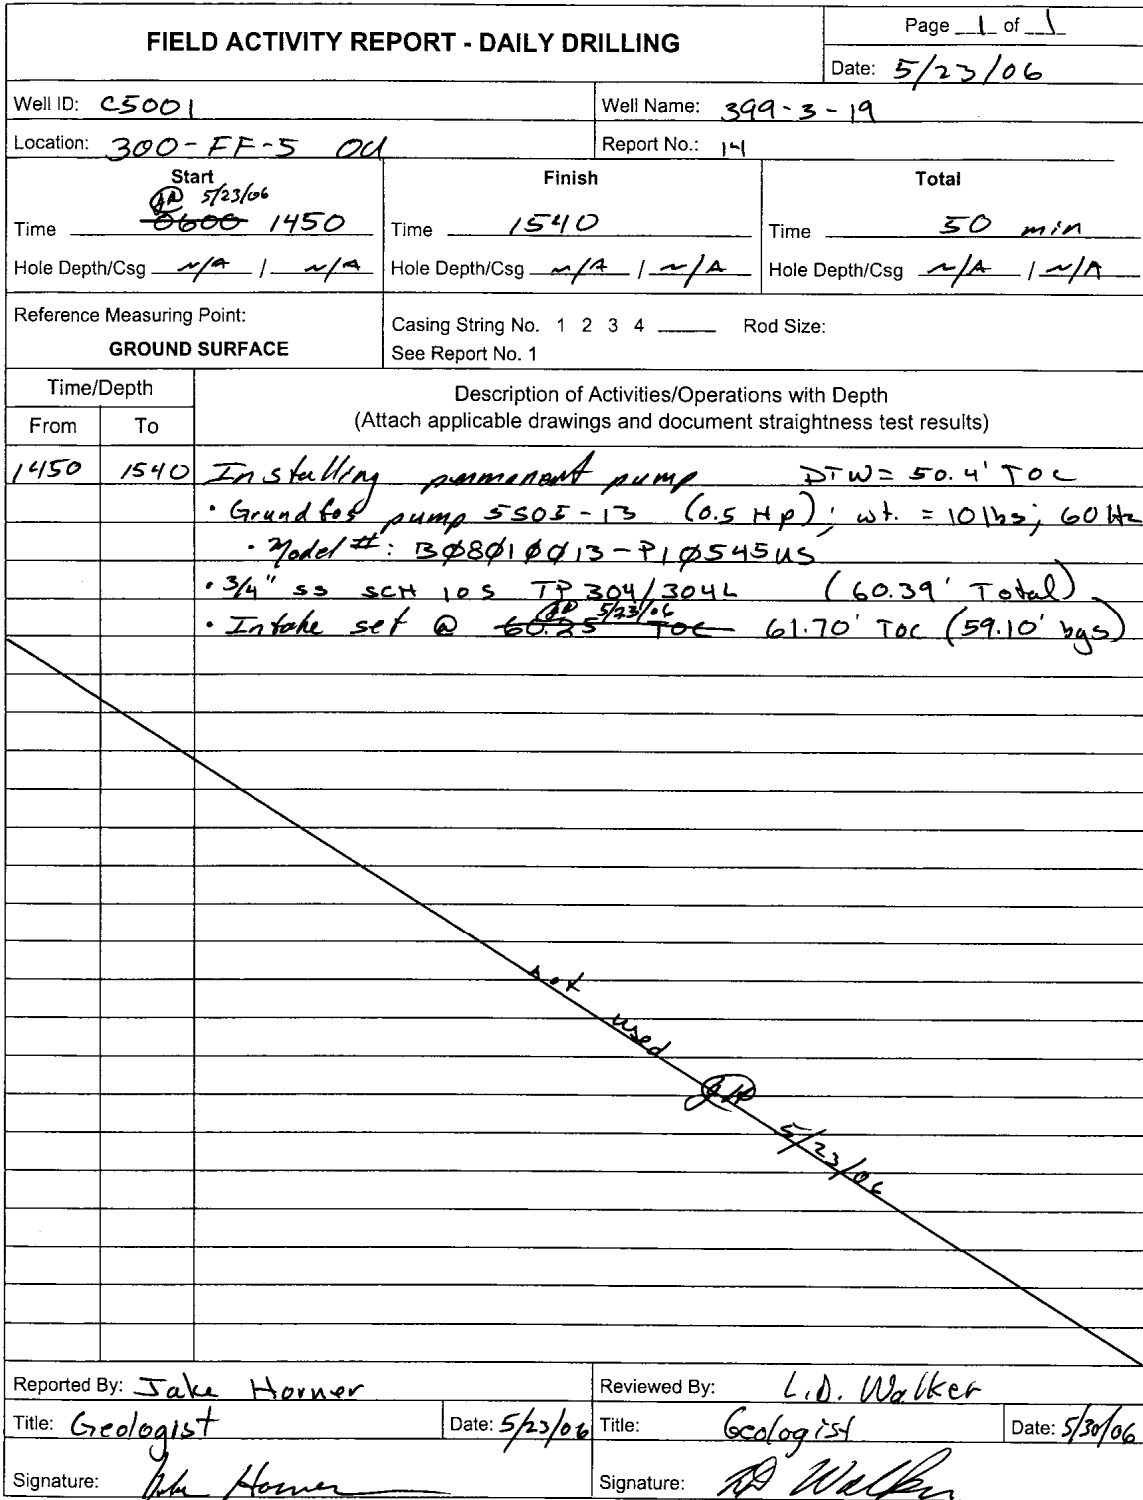 FIELD ACTIVITY REPORT - DAILY DRILLING
Page 1 of 1
Date: 5/23/06
Well ID: C5001
Well Name: 399-3-19
Location: 300-FF-5 OU
Report No.: 14
Start
Finish
Total
JH 5/23/06
Time 0600 1450
Time 1540
Time 50 min
Hole Depth/Csg N/A / N/A
Hole Depth/Csg N/A / N/A
Hole Depth/Csg N/A / N/A
Reference Measuring Point:
GROUND SURFACE
Casing String No. 1 2 3 4 ____ Rod Size:
See Report No. 1
Time/Depth
From To
Description of Activities/Operations with Depth
(Attach applicable drawings and document straightness test results)
1450 1540 Installing permanent pump DTW= 50.4' TOC
· Grundfos pump 5S05-13 (0.5 Hp); wt. = 10 lbs; 60 Hz
· Model #: BØ8Ø1ØØ13-P1Ø545US
· 3/4" SS SCH 10S TP 304/304L (60.39' Total)
JH 5/23/06
· Intake set @ 60.25' TOC 61.70' TOC (59.10' bgs)
not used JH 5/23/06
Reported By: Jake Horner
Reviewed By: L.D. Walker
Title: Geologist Date: 5/23/06
Title: Geologist Date: 5/30/06
Signature: Jake Horner
Signature: LD Walker